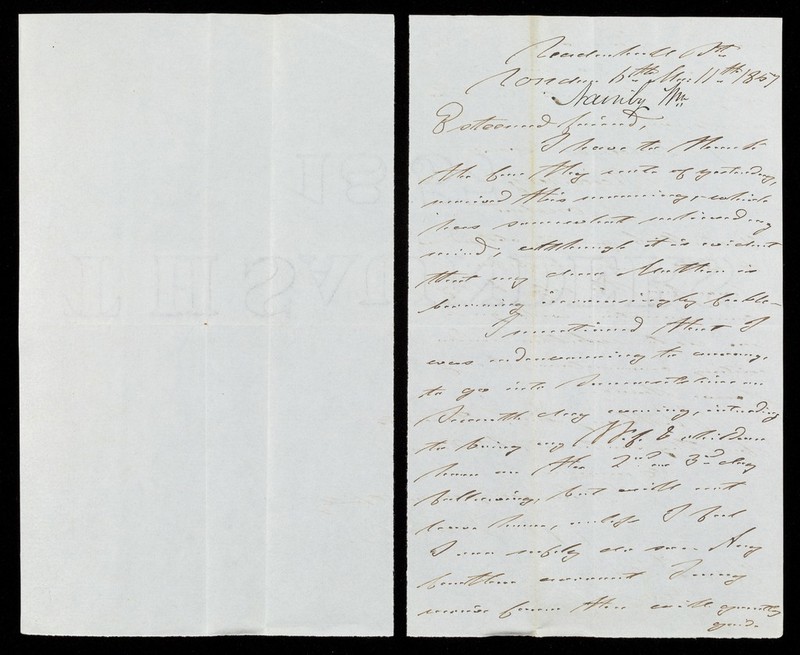 Leadenhall St
London 5th Mo: 11th 1847
Nainby Wm
Esteemed friend,
I have to thank
the for thy note of yesterday,
received this morning, which
has somewhat relieved my
mind, although it is evident
that my dear Mother is
becoming increasingly feeble
I mentioned that I
was endeavouring to arrange
to go into on
Seventh day evening, intending
to bring my Wife & children
home on the 2nd or 3rd day
following, but will not
leave home, unless I feel
I can safely do so. Any
further account
from thee will greatly